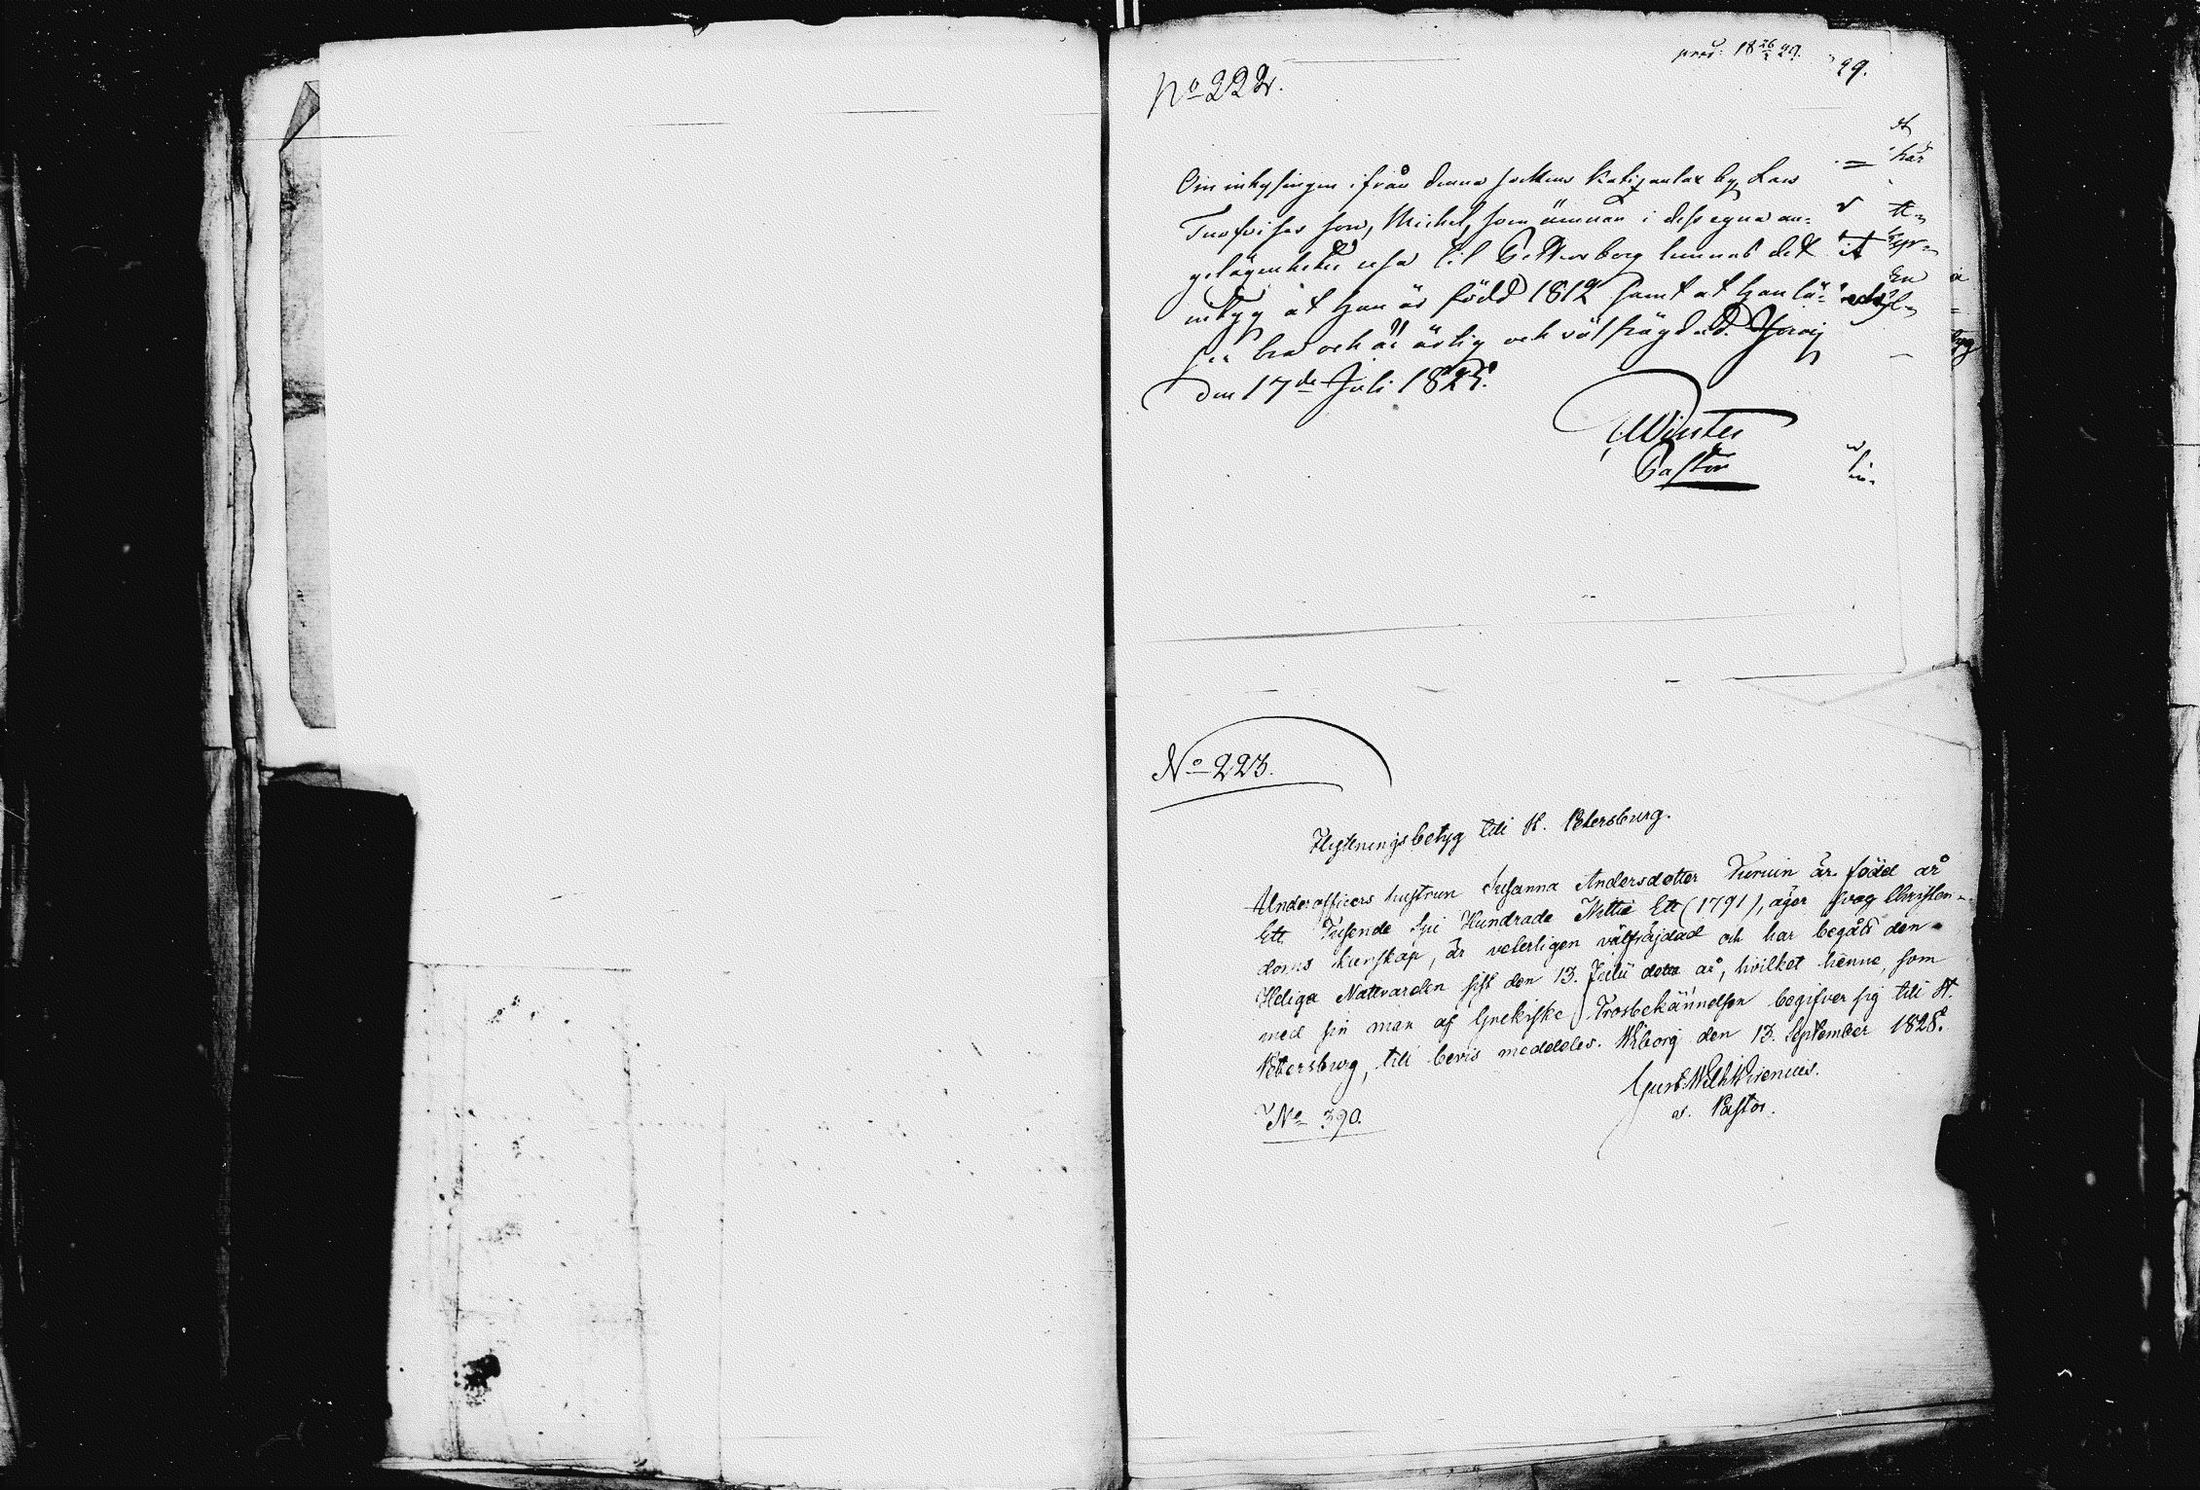 prod: 18 26/2 29.
No 222.
Om inhysingen ifrån denna sockens by Lars
son, Michel, som ämnar i dess egna an-
gelägenheter resa til Pettersborg lemnas det
intyg at han är född 1812 samt at han lä-
ser bra och är ärlig och välfrägdad.
den 17de Juli 1825.
Winter
Pastor
No 223.
Flyttningsbetyg till St. Petersburg.
Underofficers hustrun Susanna Andersdotter är född år
Ett Tusende Sju Hundrade Nittio Ett (1791), äger svag Christen-
doms kunskap, är veterligen välfräjdad och har begått den
Heliga Nattvarden sist den 13. Julii detta år, hvilket henne, som
med sin man af Grekiske Trosbekännelsen begifver sig till St.
Petersburg, till bevis meddeles. Wiborg den 13. September 1828.
Gust. Wilh. Wirenius.
v. Pastor.
No 390.